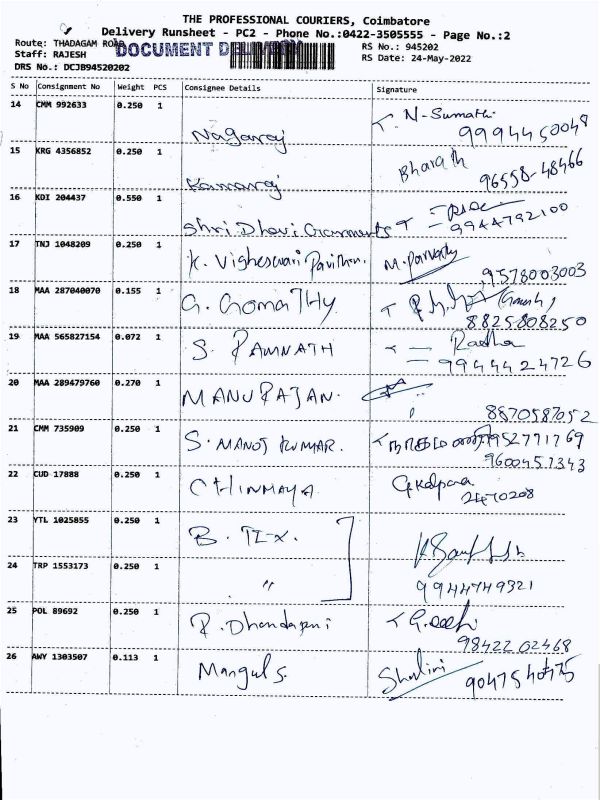 THE PROFESSIONAL COURIERS, Coimbatore
Delivery Runsheet - PC2 - Phone No.:0422-3505555 - Page No.:2
Route: THADAGAM ROAD
DOCUMENT DELIVERY
RS No.: 945202
Staff: RAJESH
RS Date: 24-May-2022
DRS No.: DCJB94520202
S No Consignment No Weight PCS Consignee Details Signature
14 CMM 992633 0.250 1 Nagaraj N-Sumathi
9994450048
15 KRG 4356852 0.250 1 Kamaraj Bharath
96558-48466
16 KDI 204437 0.550 1 Shri Dhevi Garments
9944792100
17 TNJ 1048209 0.250 1 K. Vigheswari Pavithra. M. Parvathy
9578003003
18 MAA 287040070 0.155 1 G. GomaTHy. (Ganesh)
8825808250
19 MAA 565827154 0.072 1 S. RAMNATH Radha
9944424726
20 MAA 289479760 0.270 1 MANU RAJAN.
8870587052
21 CMM 735909 0.250 1 S. MANOJ KUMAR. 9952771769
9600457343
22 CUD 17888 0.250 1 CHINMAYA G Kalpana
2470208
23 YTL 1025855 0.250 1 B. TEX.
24 TRP 1553173 0.250 1 "
9944749321
25 POL 89692 0.250 1 P. Dhandapani
98422 02468
26 AWY 1303507 0.113 1 Mangul S. Shalini